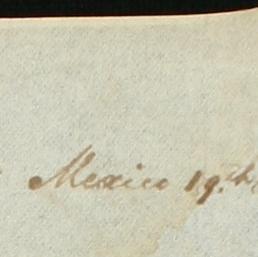 Mexico 19th